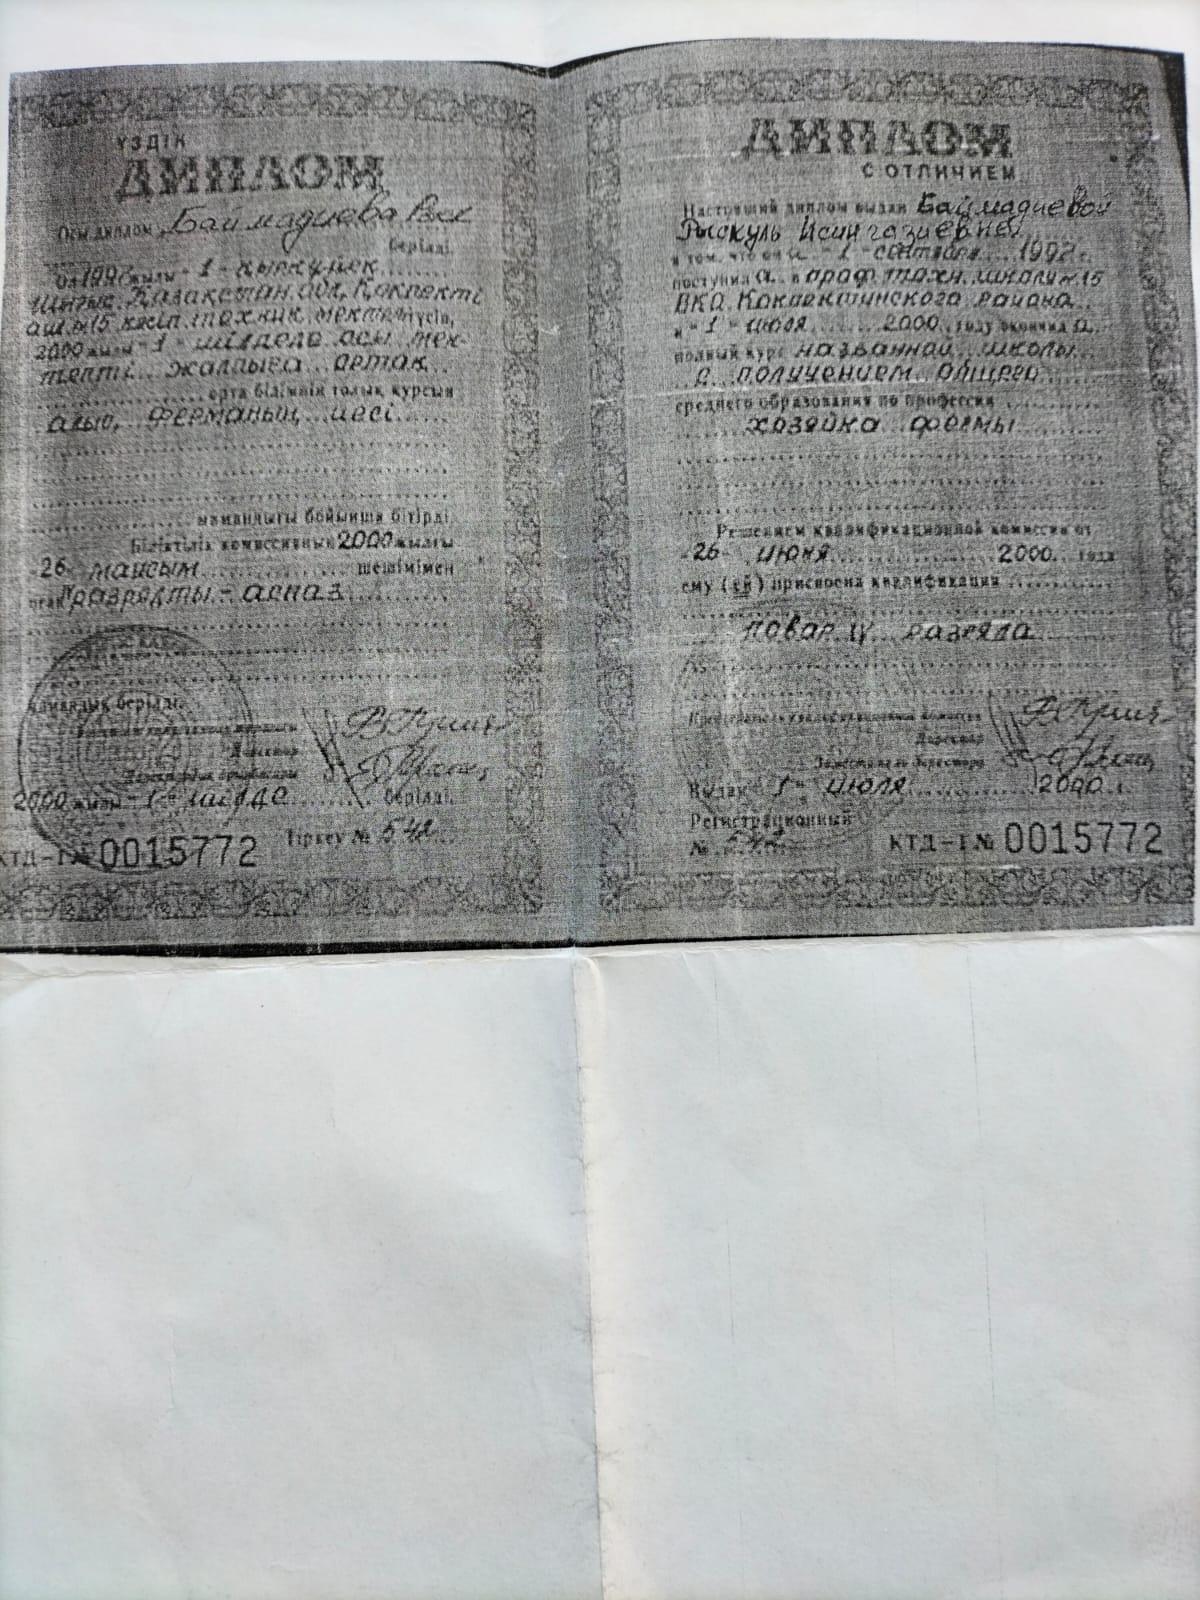 ҮЗДІК
ДИПЛОМ
Осы диплом Баймадиева
берілді.
1 - қыркүйек
Шығыс Қазақстан обл. Көкпекті
ауд. №15 кәсіп. техник. мектебі
2000 жылы - 1 - шілдеде осы мек-
тепті жалпыға ортақ
орта білімнің толық курсын
алып, ферманың иесі
мамандығы бойынша бітірді.
Біліктілік комиссияның 2000 жылғы
26 маусым шешімімен
разрядты - аспаз
мамандық берілді.
Директор
2000 жылы - 1 - шілде берілді.
КТД-I № 0015772 Тіркеу № 542
ДИПЛОМ
С ОТЛИЧИЕМ
Настоящий диплом выдан Баймадиевой
Рыскуль Исингазиевне
в том, что он а - 1 - сентября 1992 г.
поступил а в проф. техн. школу №15
ВКО Кокпектинского района
и - 1 - июля 2000 году окончил а
полный курс названной школы
с получением общего
среднего образования по профессии
хозяйка фермы
Решением квалификационной комиссии от
26 июня 2000 года
ему (ей) присвоена квалификация
повар IV разряда
Председатель квалификационной комиссии
Директор
Заместитель директора
Выдан 1 июля 2000 г.
Регистрационный
№ 542 КТД-I № 0015772